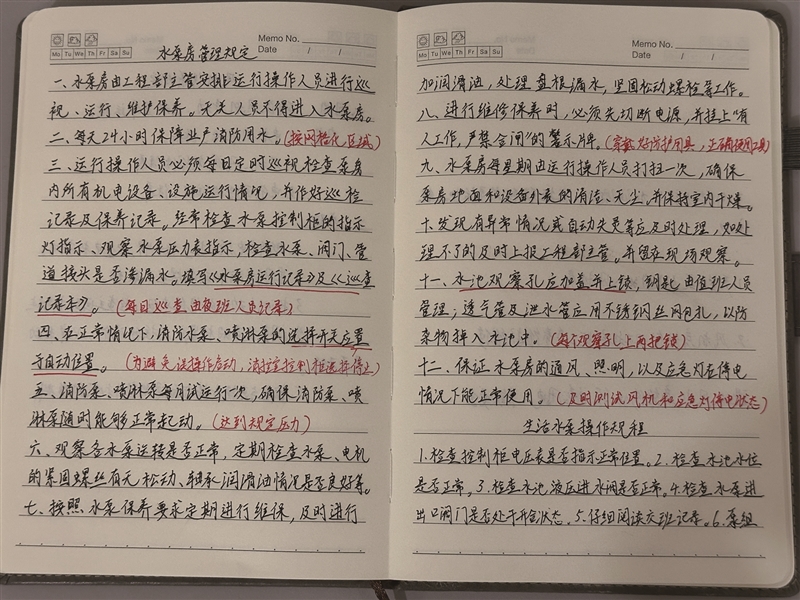 Memo No.
Mo Tu We Th Fr Sa Su
Date / /
水泵房管理规定
一、水泵房由工程部主管安排运行操作人员进行巡
视、运行、维护保养。无关人员不得进入水泵房。
二、每天24小时保障业户消防用水。(按网格化区域)
三、运行操作人员必须每日定时巡视检查泵房
内所有机电设备、设施运行情况,并作好巡检
记录及保养记录。经常检查水泵控制柜的指示
灯指示、观察水泵压力表指示,检查水泵、阀门、管
道接头是否渗漏水。填写《水泵房运行记录》及《巡查
记录本》。(每日巡查由值班人员记录)
四、在正常情况下,消防水泵、喷淋泵的选择开关应置
于自动位置。(为避免误操作启动,消控室控制柜选择停止)
五、消防泵、喷淋泵每月试运行一次,确保消防泵、喷
淋泵随时能够正常起动。(达到规定压力)
六、观察各水泵运转是否正常,定期检查水泵、电机
的紧固螺丝有无松动、轴承润滑油情况是否良好等。
七、按照水泵保养要求定期进行维保,及时进行
Memo No.
Mo Tu We Th Fr Sa Su
Date / /
加润滑油,处理盘根漏水,坚固松动螺栓等工作。
八、进行维修保养时,必须先切断电源,并挂上"有
人工作,严禁合闸"的警示牌。(穿戴好防护用具,正确使用工具)
九、水泵房每星期由运行操作人员打扫一次,确保
泵房地面和设备外表的清洁、无尘,并保持室内干燥。
十、发现有异常情况或自动失灵等应及时处理,如处
理不了的及时上报工程部主管。并留在现场观察。
十一、水池观察孔应加盖并上锁,钥匙由值班人员
管理;透气管及泄水管应用不锈钢丝网包扎,以防
杂物掉入水池中。(每个观察孔上两把锁)
十二、保证水泵房的通风、照明,以及应急灯在停电
情况下能正常使用。(及时测试风机和应急灯停电状态)
生活水泵操作规程
1.检查控制柜电压表是否指示正常位置。2.检查水池水位
是否正常。3.检查水池液压进水阀是否正常。4.检查水泵进
出口阀门是否处于开启状态。5.仔细阅读交班记录。6.泵组